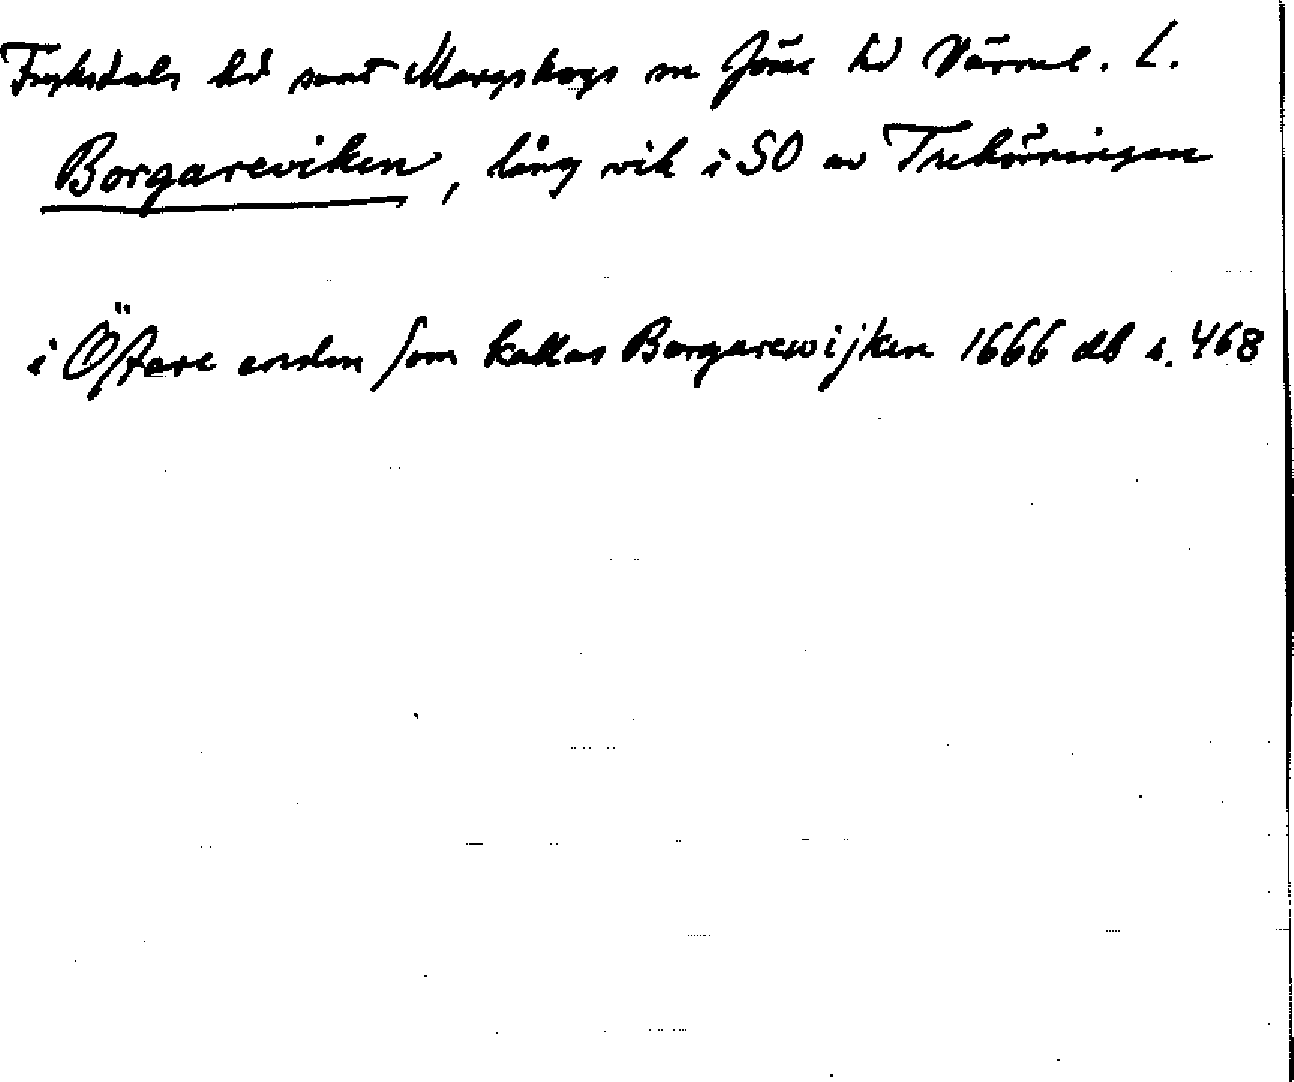 Fryksdals hd samt Mangskogs sn Jösse hd Värml. L.
Borgareviken, lång vik i SO av Trehörningen
i Östare enden som kallas Borgarewijken 1666 db s. 468